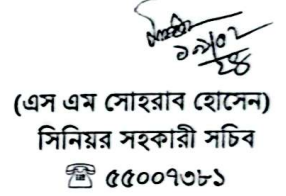 (এস এম সোহরাব হোসেন)
সিনিয়র সহকারী সচিব
☎ ৫৫০০৭৩৮১